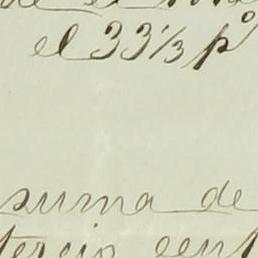 de el
el 33 1/3 pº
suma de
tercio cent